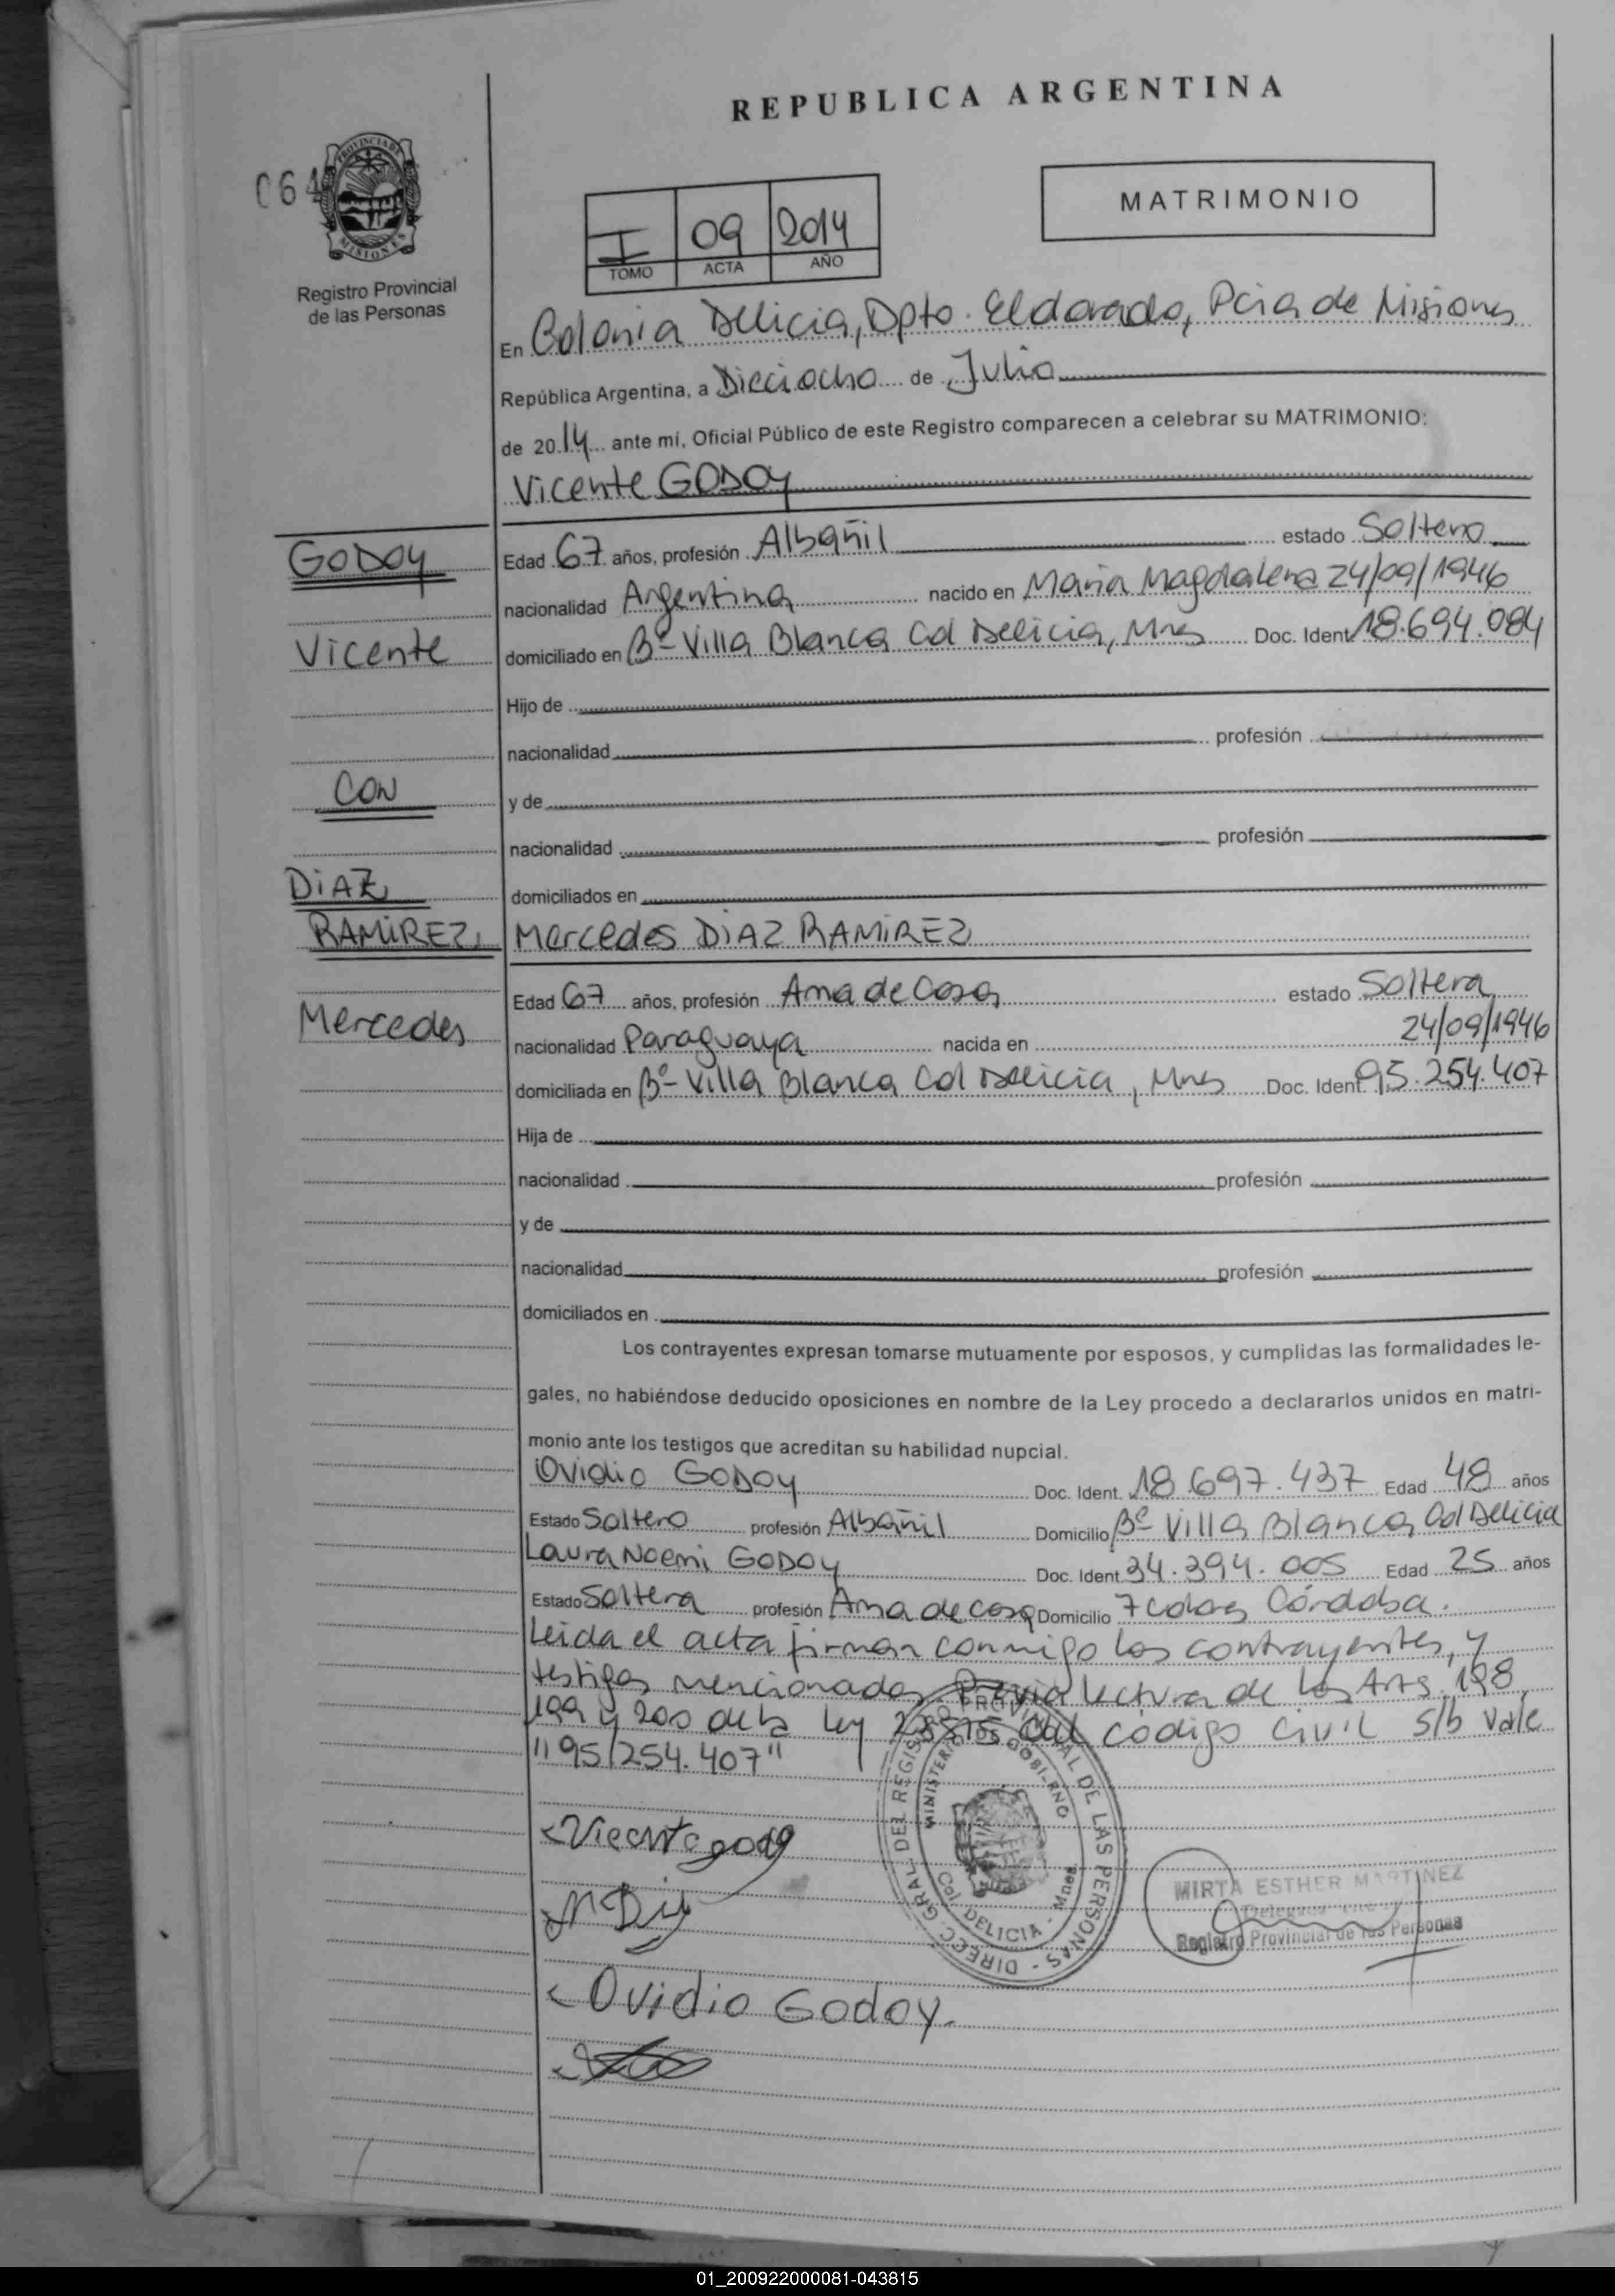 REPUBLICA ARGENTINA
064
PROVINCIA DE MISIONES
Registro Provincial
de las Personas
MATRIMONIO
I 09 2014
TOMO ACTA AÑO
En Colonia Delicia, Dpto. Eldorado, Pcia de Misiones
República Argentina, a Dieciocho de Julio
de 2014 ante mí, Oficial Público de este Registro comparecen a celebrar su MATRIMONIO:
Vicente GODOY
GODOY
Vicente
CON
DiAZ
RAMiREZ
Mercedes
Edad 67 años, profesión Albañil estado Soltero
nacionalidad Argentina nacido en Maria Magdalena 24/09/1946
domiciliado en Bº Villa Blanca Col Delicia, Mnes Doc. Ident 18.694.084
Hijo de
nacionalidad profesión
y de
nacionalidad profesión
domiciliados en
Mercedes DiAZ RAMiREZ
Edad 67 años, profesión Ama de Casa estado Soltera
nacionalidad Paraguaya nacida en 24/09/1946
domiciliada en Bº Villa Blanca Col Delicia, Mnes Doc. Ident 95.254.407
Hija de
nacionalidad profesión
y de
nacionalidad profesión
domiciliados en
Los contrayentes expresan tomarse mutuamente por esposos, y cumplidas las formalidades le-
gales, no habiéndose deducido oposiciones en nombre de la Ley procedo a declararlos unidos en matri-
monio ante los testigos que acreditan su habilidad nupcial.
Ovidio GODOY Doc. Ident. 18.697.437 Edad 48 años
Estado Soltero profesión Albañil Domicilio Bº Villa Blanca, Col Delicia
Laura Noemi GODOY Doc. Ident 34.394.005 Edad 25 años
Estado Soltera profesión Ama de casa Domicilio 7 Córdoba.
Leida el acta firman conmigo los contrayentes, y
testigos mencionados Previa lectura de los Arts. 198,
199 y 200 de la Ley 23515 del código civil s/b vale
"95/254.407"
Vicente godoy
M Diz
DIRECC. GRAL. DEL REGISTRO PROVINCIAL DE LAS PERSONAS
MINISTERIO DE GOBIERNO
Col. DELICIA - Mnes.
MIRTA ESTHER MARTINEZ
Registro Provincial de las Personas
Ovidio Godoy.
01_200922000081-043815